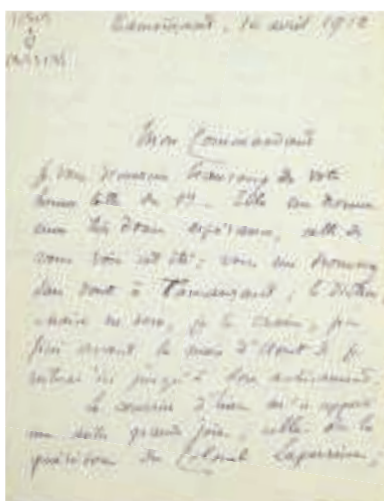 Tamanrasset, 14 avril 1912
Mon Commandant
Je vous remercie beaucoup de votre
bonne lettre du 19. Elle me donne
une très douce espérance, celle de
vous voir cet été ; vous me trouverez
sans doute à Tamanrasset ; le diction
naire ne sera, je le crois, pas
fini avant le mois d'
ici jusqu'à son achèvement.
Le courrier d'hier m'a apporté
une autre grande joie, celle de la
guérison du Colonel Laperrine,